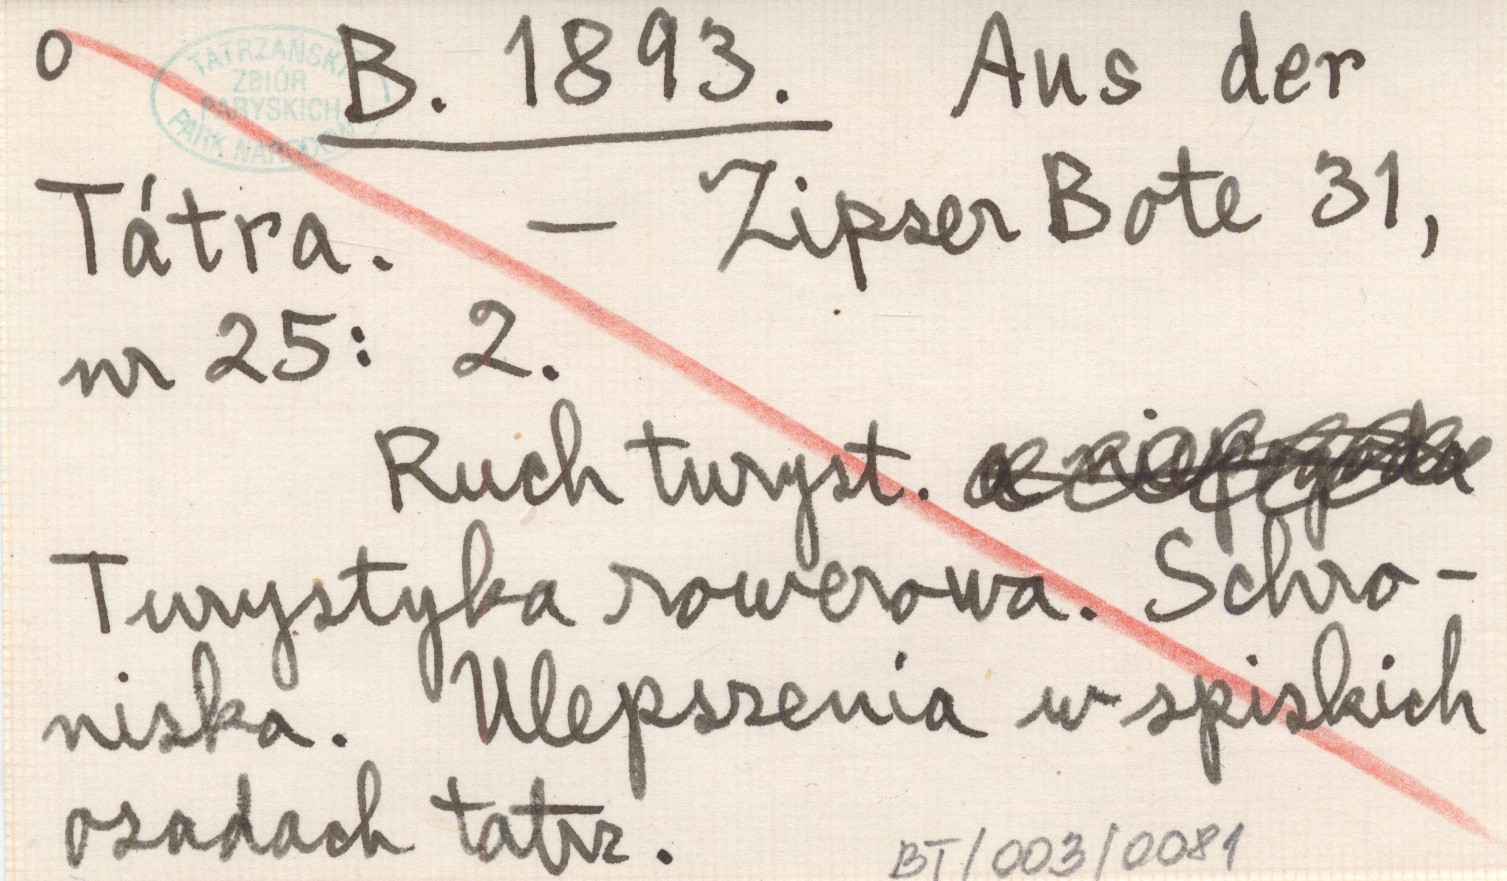 O B. 1893. Aus der
TATRZAŃSKI
ZBIÓR
PARYSKICH
PARK NARODOWY
Tátra. — Zipser Bote 31,
nr 25: 2.
Ruch turyst.
Turystyka rowerowa. Schro-
niska. Ulepszenia w spiskich
osadach tatrz.
BT/003/0081